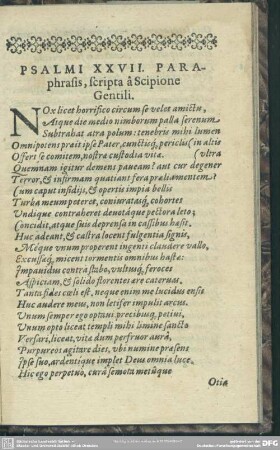 PSALMI XXVII. PARA-
phrasis, scripta à Scipione
Gentili.
NOx licet horrifico circum se velet amictu,
Atque die medio nimborum palla serenum
Subtrahat atra polum: tenebris mihi lumen
Omnipotens præit ipse Pater, cunctisq́; periclis (in altis
Offert se comitem, nostræ custodia vitæ. (vltra
Quemnam igitur demens paueam? aut cur degener
Terror, & infirmam quatiant fera prælia mentem?
Cum caput infidijs, & opertis impia bollis
Turba meum peteret, coniuratasq́; cohortes
Vndique contraheret deuotaque pectora leto;
Concidit, atque suis deprensa in cassibus hæsit.
Huc adeant, & castra locent fulgentia signis,
Meque vnum properent ingenti claudere vallo,
Excussaq́; micent tormentis omnibus hasta:
Impauidus contra stabo, vultuq́; feroces
Aspiciam, & solido florentes ære cateruas.
Tanta fides cœli est, neque enim me lucidus ensis
Huc audere meus, non letifer impulit arcus.
Vnum semper ego optaui, precibusq́; potiui,
Vnum opto liceat templi mihi limine sancto
Versari, liceat, vita dum perfruor aura,
Purpureos agitare dies, vbi numine præsens
Ipse suo, ardentique implet Deus omnia luce.
Hic ego perpetuo, cura semota metuque
Otia